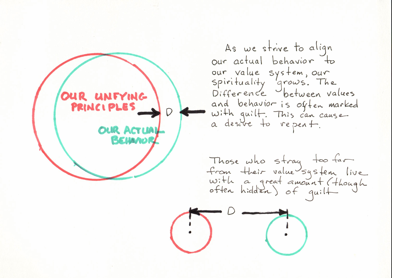 OUR UNIFYING
PRINCIPLES
D
OUR ACTUAL
BEHAVIOR
As we strive to align
our actual behavior to
our value system, our
spirituality grows. The
Difference between values
and behavior is often marked
with guilt. This can cause
a desire to repent.
Those who stray too far
from their value system live
with a great amount (though
often hidden) of guilt
D